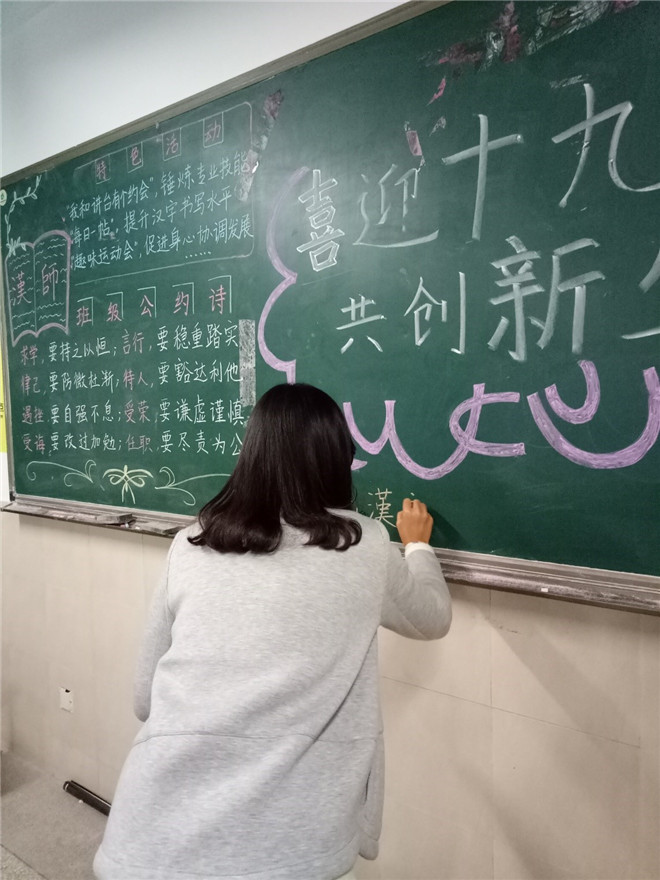 特色活动
"我和讲台有个约会",锤炼专业技能
"每日一帖",提升汉字书写水平
"趣味运动会",促进身心协调发展
......
漢師
班级公约诗
求学,要持之以恒;言行,要稳重踏实
律己,要防微杜渐;待人,要豁达利他
遇挫,要自强不息;受荣,要谦虚谨慎
受诲,要改过加勉;任职,要尽责为公
喜迎十九
共创新
漢